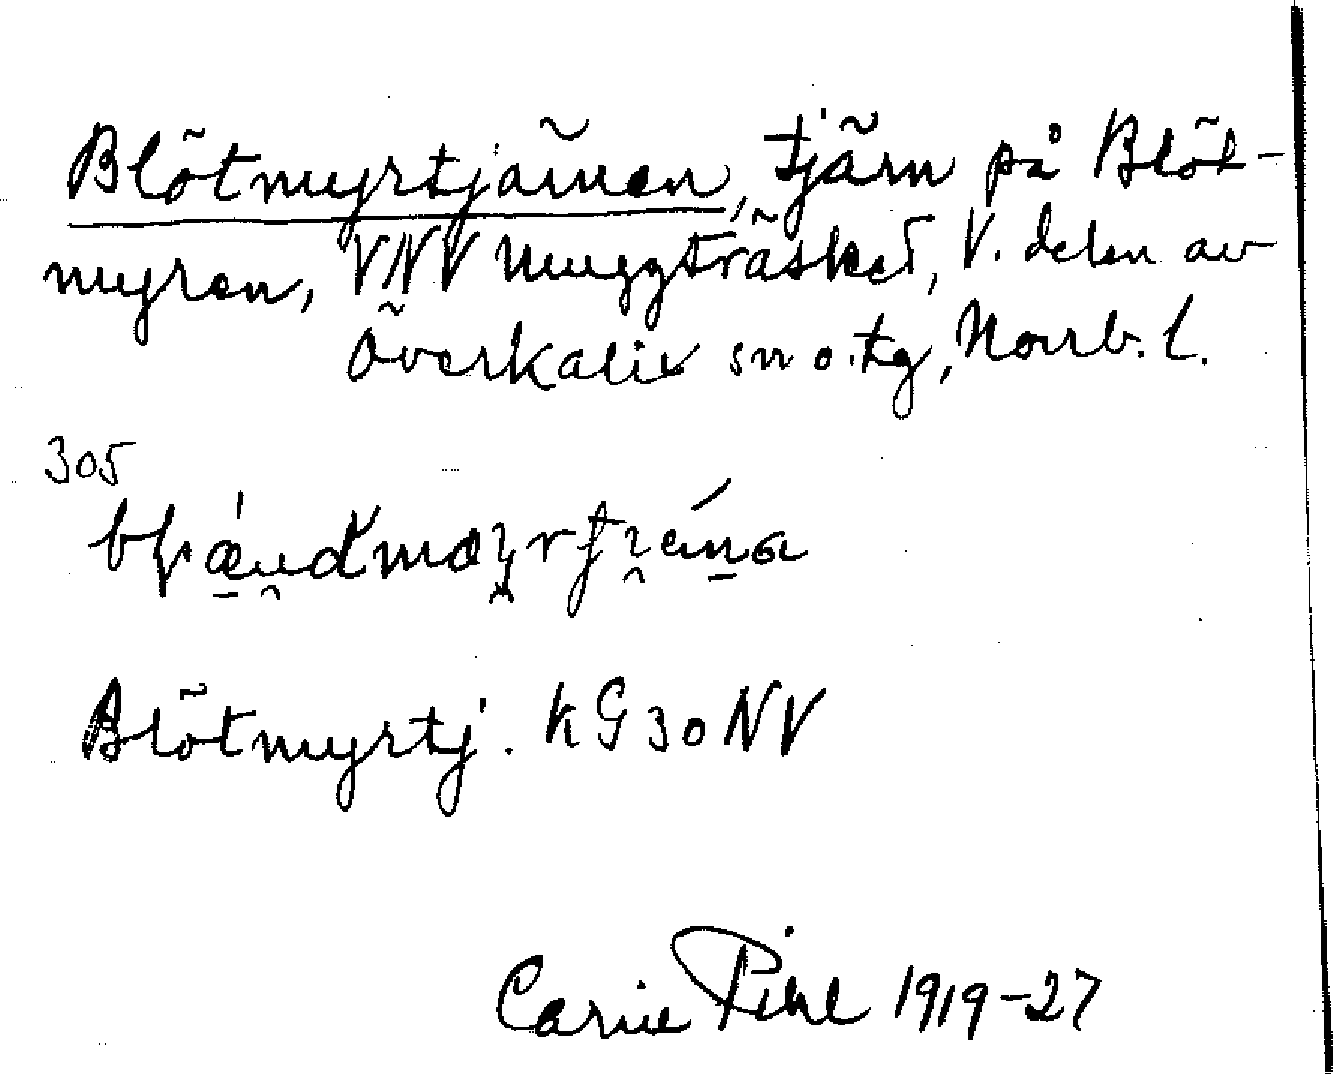 Blötmyrtjärnen, tjärn på Blöt-
myren, VNV Muggträsket, V. delen av
Överkalix sn o. tg, Norrb. l.
305
Blötmyrtj. KG 30 NV
Carin Pihl 1919-27